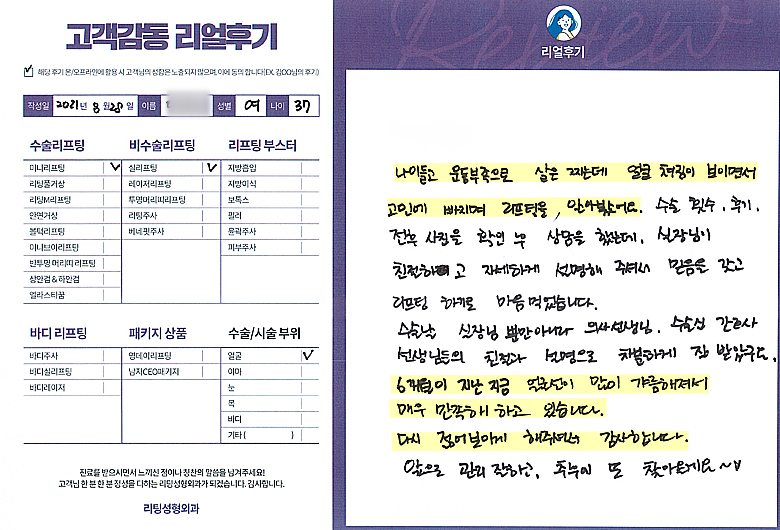 고객감동 리얼후기
해당 후기 온/오프라인에 활용 시 고객님의 성함은 노출되지 않으며, 이에 동의 합니다(EX. 김OO님의 후기)
작성일 2021년 8월 28일 이름 성별 여 나이 37
수술리프팅
미니리프팅
리팅풀거상
리팅M리프팅
안면거상
볼턱리프팅
이브이리프팅
반투명 머리띠 리프팅
상안검 & 하안검
엘라스티꿈
비수술리프팅
실리프팅
레이저리프팅
투명머리띠리프팅
리팅주사
베네핏주사
리프팅 부스터
지방흡입
지방이식
보톡스
필러
윤곽주사
피부주사
바디 리프팅
바디주사
바디실리프팅
바디레이저
패키지 상품
원데이리프팅
남자CEO패키지
수술/시술 부위
얼굴
이마
눈
목
바디
기타 ( )
진료를 받으시면서 느끼신 점이나 칭찬의 말씀을 남겨주세요!
고객님 한 분 한 분 정성을 다하는 리팅성형외과가 되겠습니다. 감사합니다.
리팅성형외과
Review
리얼후기
나이들고 운동부족으로 살은 찌는데 얼굴 처짐이 보이면서
고민에 빠지며 리프팅을, 알아봤어요. 수술 횟수, 후기,
전후 사진을 확인 후 상담을 했는데, 실장님이
친절하고 자세하게 설명해 주셔서 믿음을 갖고
리프팅 하기로 마음 먹었습니다.
수술날 실장님 뿐만아니라 의사선생님, 수술실 간호사
선생님들의 친절과 설명으로 차분하게 잘 받았구요.
6개월이 지난 지금 얼굴선이 많이 갸름해져서
매우 만족해 하고 있습니다.
다시 젊어날아게 해주셔서 감사합니다.
앞으로 관리 잘하고, 또 찾아뵐게요~v